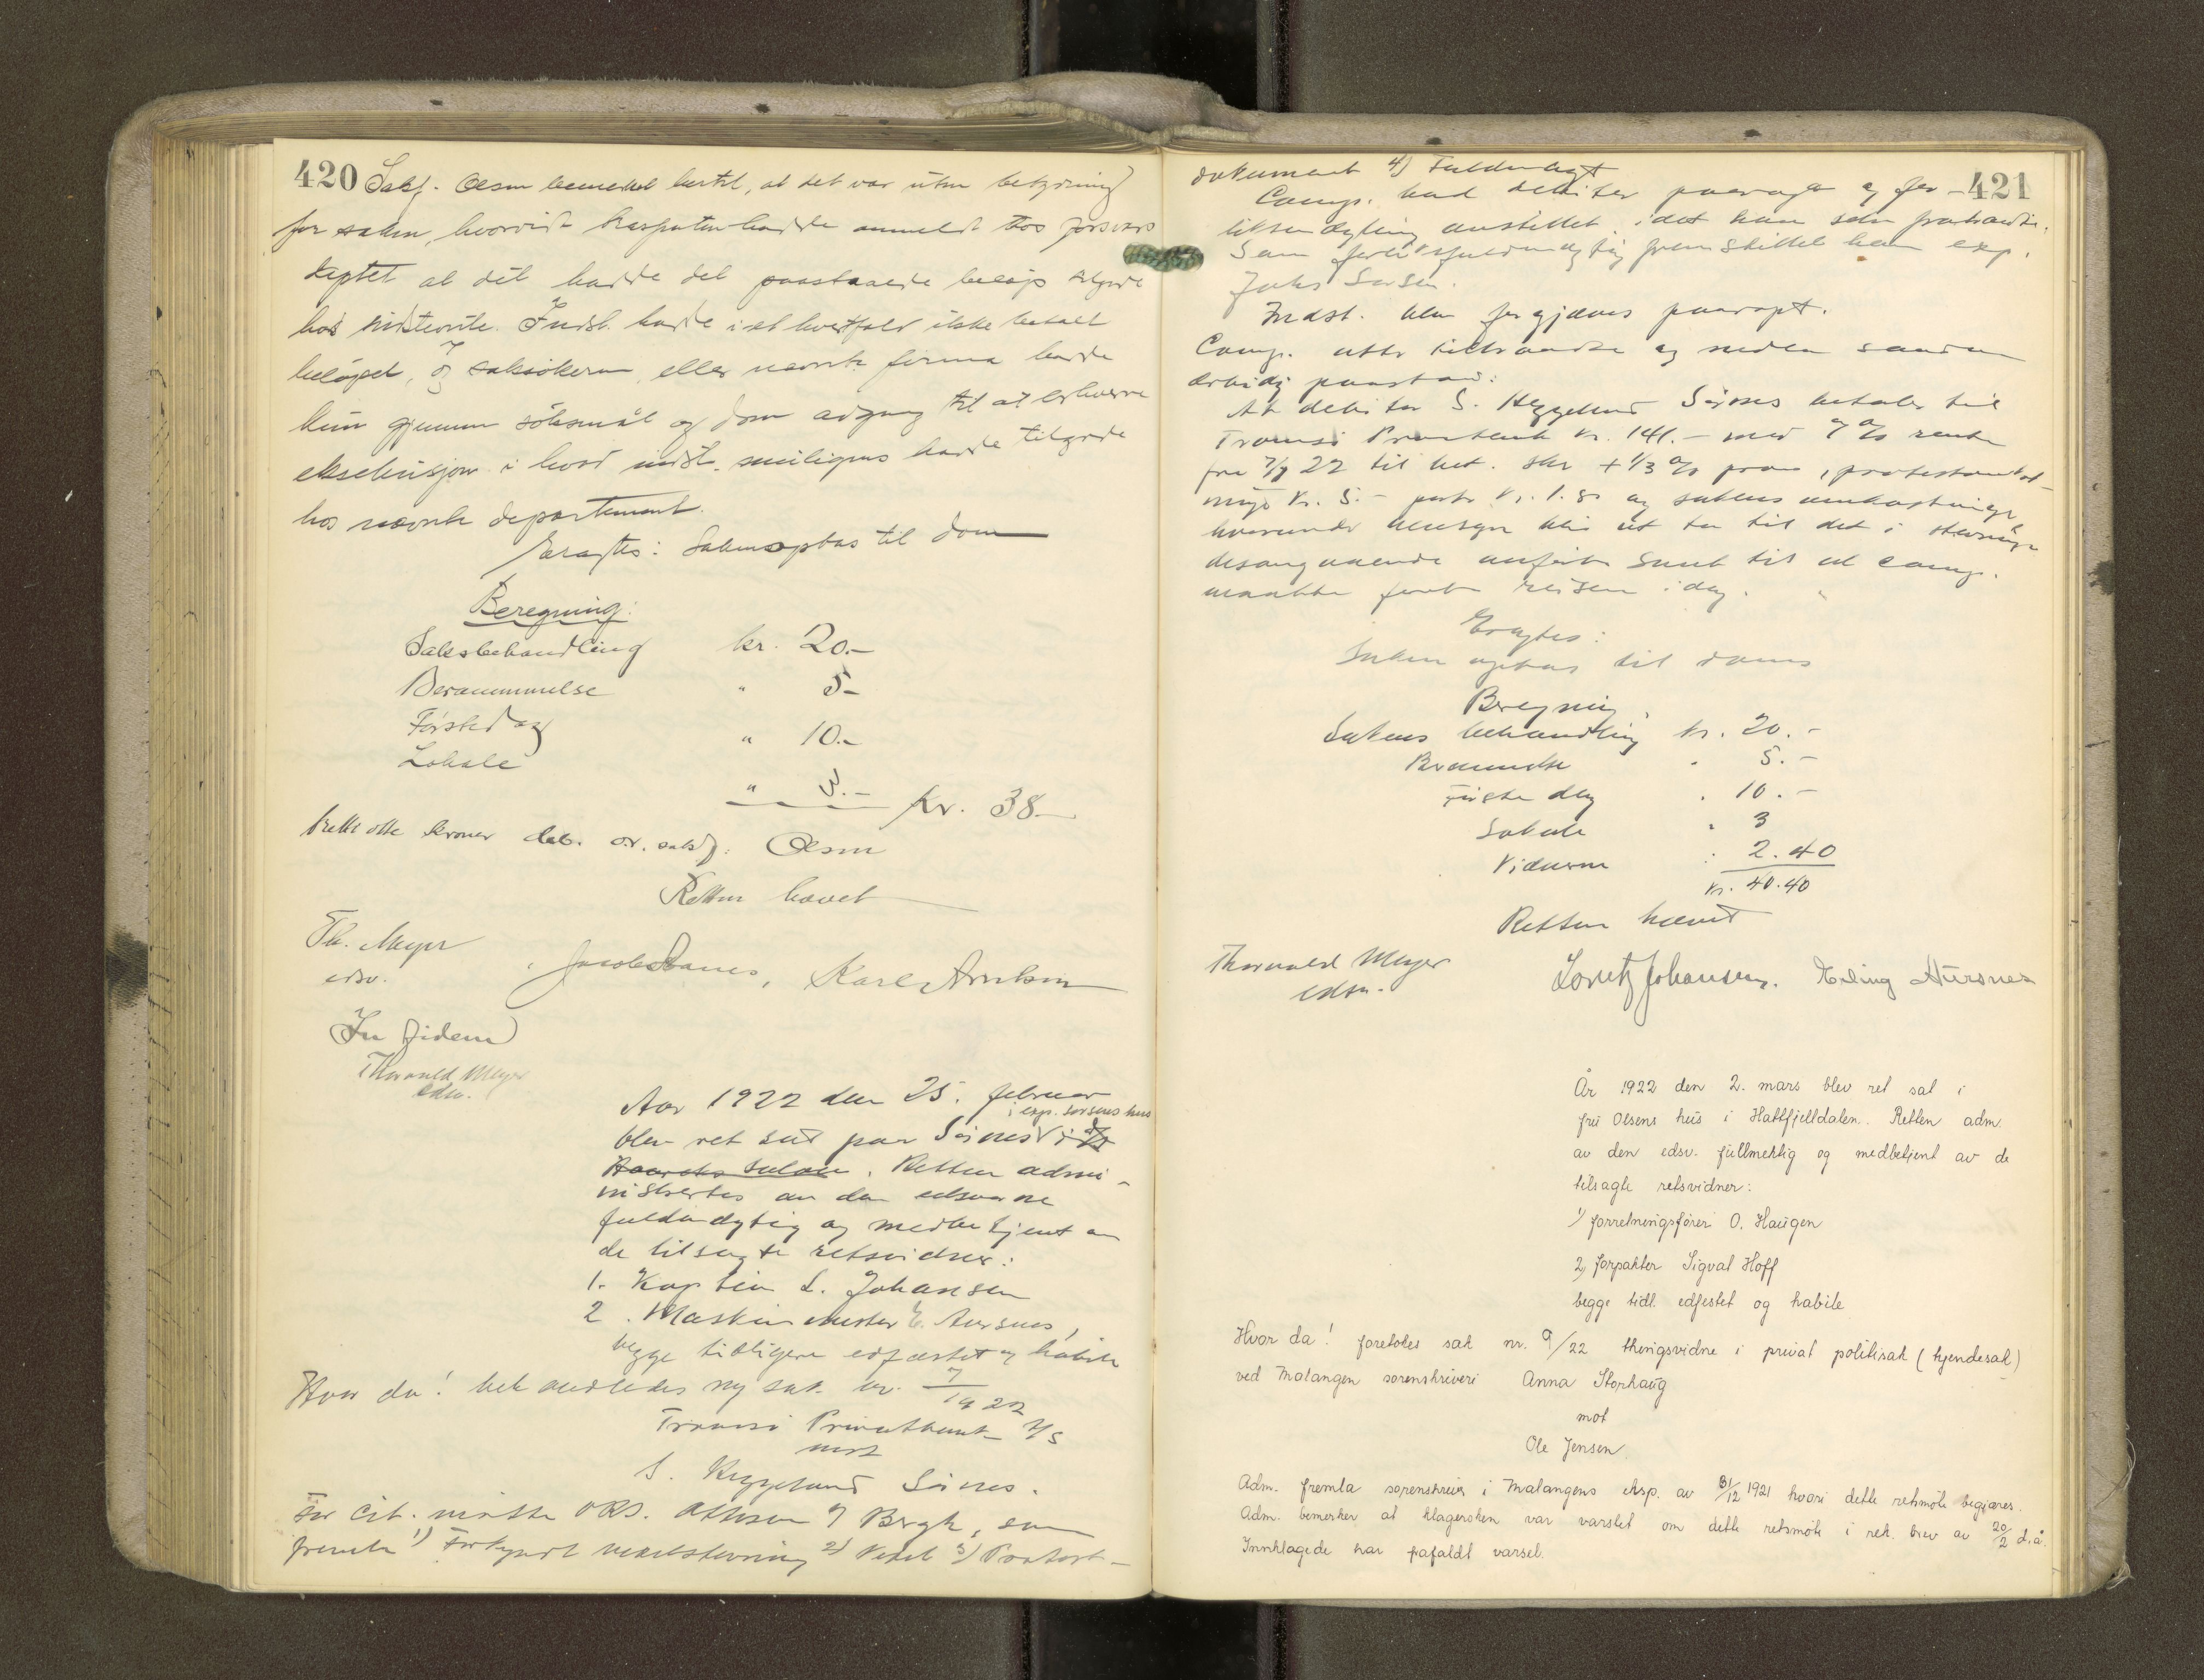 420
Sakf. Olsen bemerket hertil, at det var uten betydning
for saken, hvorvidt Rasputen hadde anmeldt hos forsvars
deptet at det hadde det paastaaede beløp tilgode
hos indstevnte. Indst. hadde i et hvertfald ikke betalt
beløpet, og saksøkeren eller nevnte firma hadde
kun gjennem søksmål og dom adgang til at erhverve
eksekusjon i hvad indst. muligens hadde tilgode
hos nævnte departement.
Eragtes: Saken optas til dom
Beregning:
Saksbehandling kr. 20.-
Berammelse " 5-
Første dag " 10.-
Lokale
" 3.- Kr. 38.-
tretti otte kroner deb. o.r. sakf. Olsen
Retten hævet
Th. Meyer
edsv.
Jacob Danes, Karl Arntsen
In fidem
Thorvald Meyer
edsv.
Aar 1922 den 25. februar
i exp. Sørsens hus
blev ret sat paa Søines i
lokale. Retten admi-
nistrertes av den edsvorne
fuldmægtig og medbetjent av
de tilsagte retsvidner:
1. Kaptein L. Johansen
2. Maskinmester E. Aursnes,
begge tidligere edfæstet og habile
Hvor da! behandledes ny sak nr. 7/1922
Tromsø Privatbank A/S
mot
S. Heggelund Søines.
For cit. møtte ORS. Ottesen og Bergh, som
fremla 1) Forkyndt vexelstevning 2) Vexel 3) Protest-
421
dokument 4) Fuldmagt
Comp. bad debitor paaropt og for-
liksmægling anstillet, idet han selv fratraadte.
Som forliksfuldmægtig fremstillet han exp.
Johs Sørsen.
Indst. blev forgjæves paaropt.
Comp. atter tiltraadte og nedla saadan
ærbødig paastand:
At debitor S. Heggelund Søines betaler til
Tromsø Privatbank kr. 141.- med 7% rente
fra 7/1 22 til bet. sker + 1/3 % prov, protestomkost-
ninger kr. 5.- porto kr. 1.80 og sakens omkostninger
hvorunder hensyn blir at ta til det i stevningen
desangaaende anførte samt til at comp.
maatte foreta reisen idag.
Eragtes:
Saken optas til doms
Beregning
Sakens behandling kr. 20.-
Berammelse " 5.-
Første dag " 10.-
Lokale " 3
Vidnerne : 2.40
kr. 40.40
Retten hævet
Thorvald Meyer
edsv.
Loretz Johansen. Erling Aursnes
År 1922 den 2. mars blev ret sat i
fru Olsens hus i Hattfjelldalen. Retten adm.
av den edsv. fullmektig og medbetjent av de
tilsagte retsvidner:
1) forretningsfører O. Haugen
2) forpakter Sigval Hoff
begge tidl. edfestet og habile
Hvor da! foretokes sak nr. 9/22 thingsvidne i privat politisak (kjendesak)
ved Malangen sorenskriveri Anna Storhaug
mot
Ole Jensen
Adm. fremla sorenskriver i Malangens eksp. av 31/12 1921 hvori dette retsmøte begjæres.
Adm. bemerker at klagersken var varslet om dette retsmøte i rek. brev av 20/2 d.å.
Innklagede har pafaldt varsel.